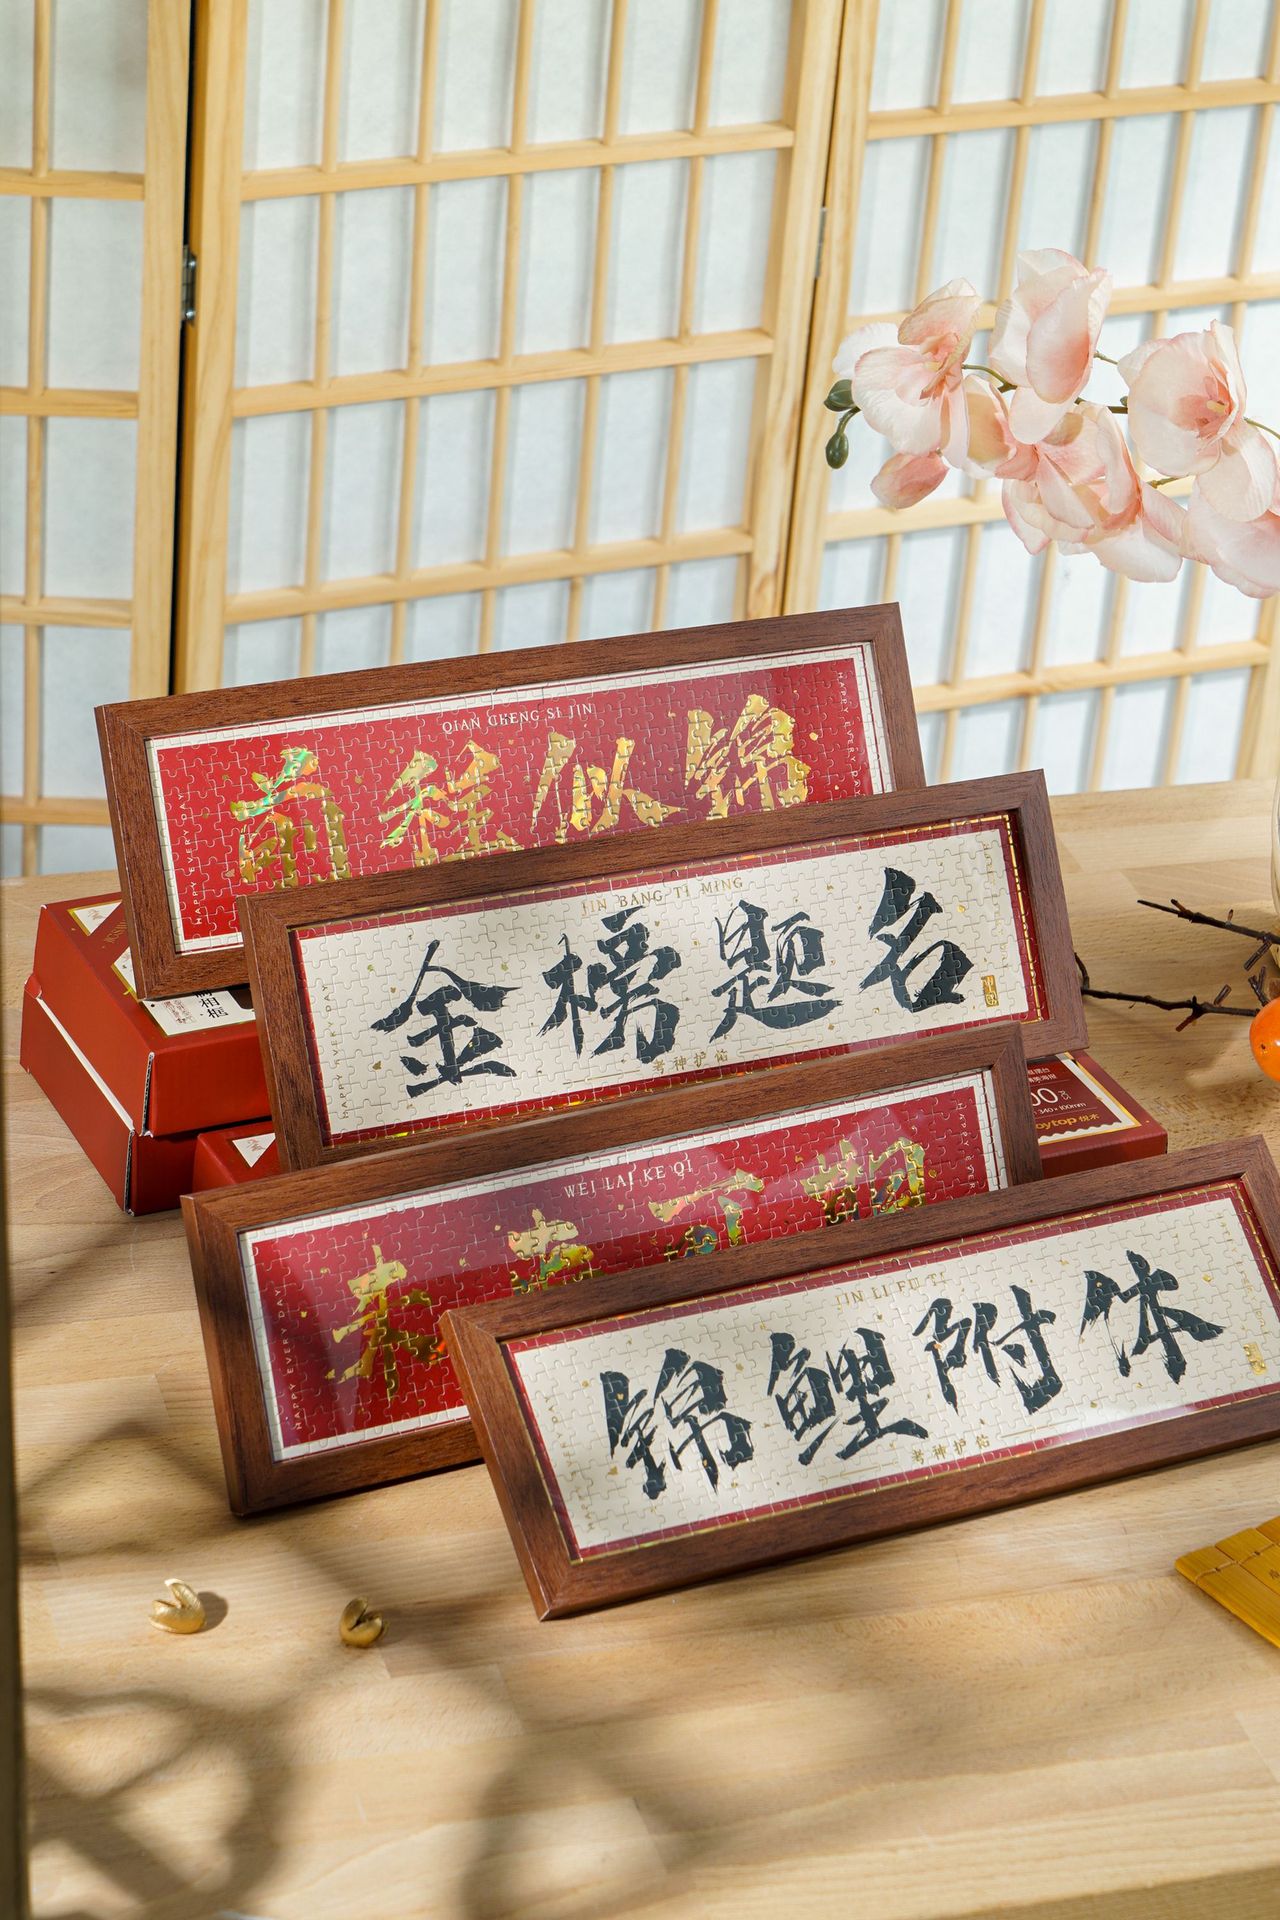 QIAN CHENG SI JIN
HAPPY EVERY DAY
前程似锦
HAPPY EVERY DAY
JIN BANG TI MING
HAPPY EVERY DAY
金榜题名
考神护佑
相框
340 x 100mm
WEI LAI KE QI
HAPPY EVERY DAY
未来可期
HAPPY EVER
JIN LI FU TI
锦鲤附体
考神护佑